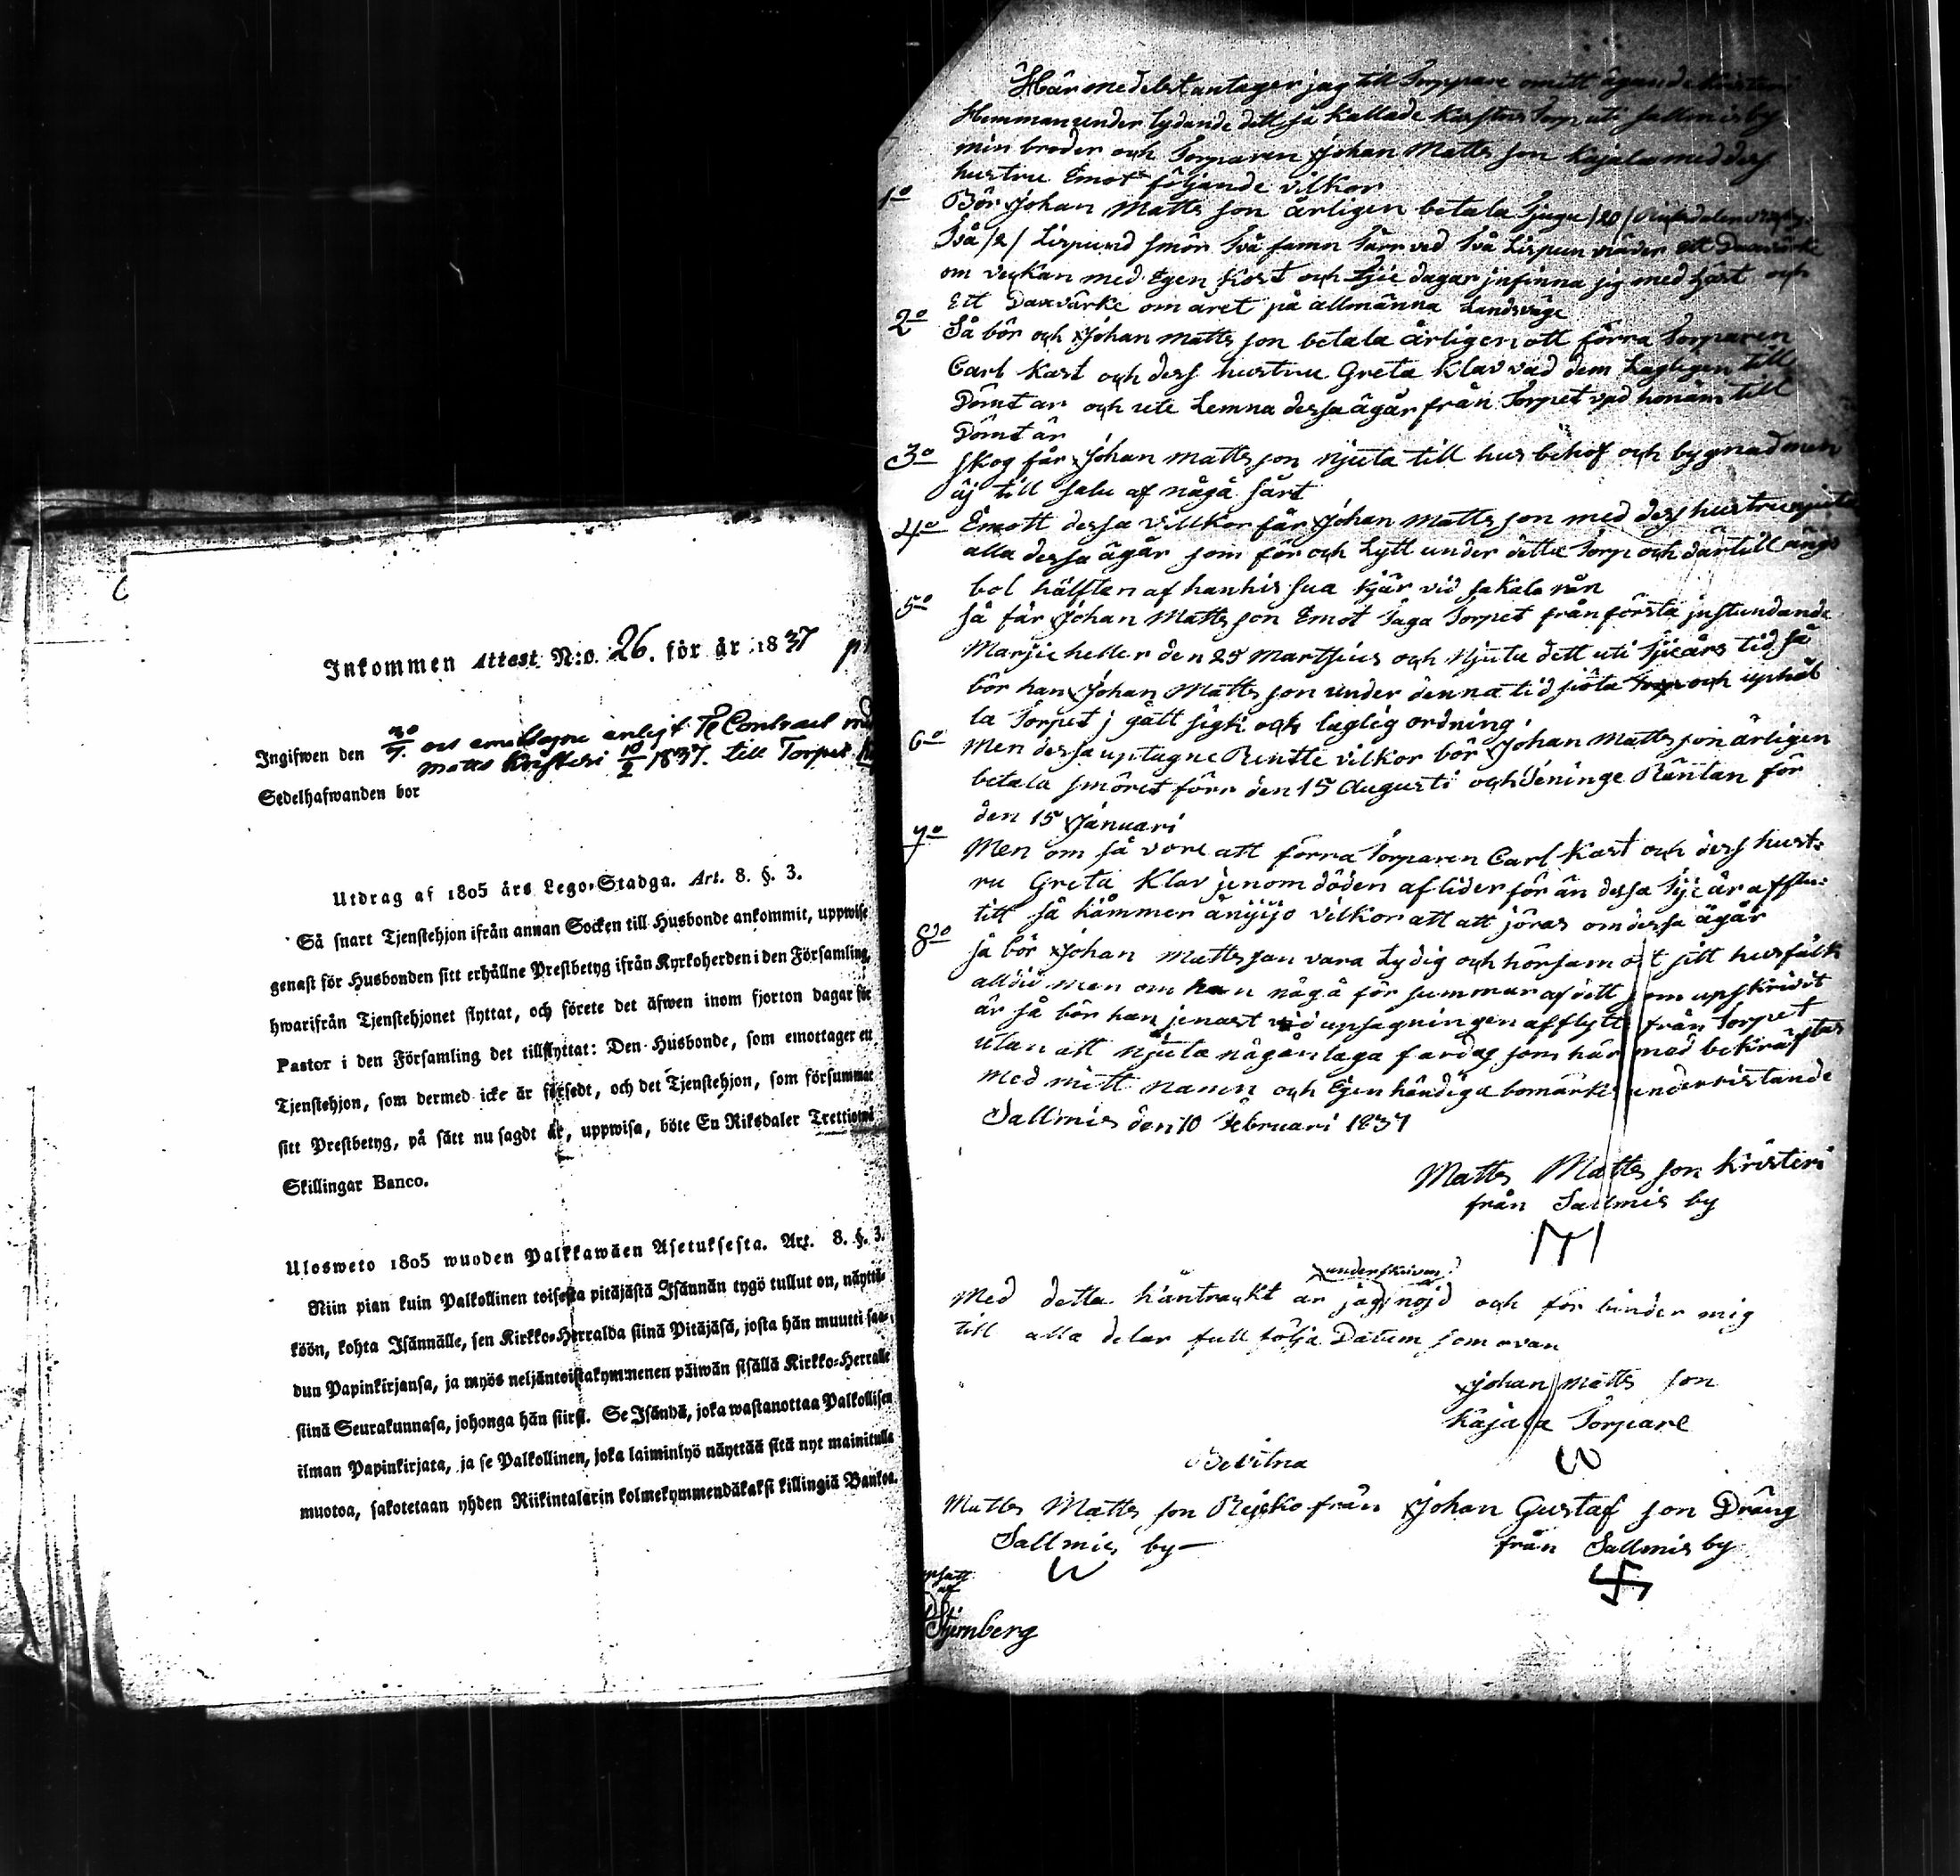 Inkommen Attest N:o 26. för år 1837
Ingifwen den 30/9. enligt Contract
Matts Kristeri 10/2 1837. till Torpet
Sedelhafwanden bor
Utdrag af 1805 års Lego-Stadga. Art. 8. §. 3.
Så snart Tjenstehjon ifrån annan Socken till Husbonde ankommit, uppwise
genast för Husbonden sitt erhållne Prestbetyg ifrån Kyrkoherden i den Församling,
hwarifrån Tjenstehjonet flyttat, och förete det äfwen inom fjorton dagar för
Pastor i den Församling det tillflyttat: Den Husbonde, som emottager ett
Tjenstehjon, som dermed icke är försedt, och det Tjenstehjon, som försummar
sitt Prestbetyg, på sätt nu sagdt är, uppwisa, böte En Riksdaler Trettiotwå
Skillingar Banco.
Ulosweto 1805 wuoden Palkkawäen Asetuksesta. Art. 8. §. 3.
Niin pian kuin Palkollinen toisesta pitäjästä Isännän tygö tullut on, näyttä-
köön, kohta Isännälle, sen Kirkko-Herralda siinä Pitäjäsä, josta hän muutti saa-
dun Papinkirjansa, ja myös neljäntoistakymmenen päiwän sisällä Kirkko-Herralle
siinä Seurakunnasa, johonga hän siirsi. Se Isändä, joka wastanottaa Palkollisen
ilman Papinkirjata, ja se Palkollinen, joka laiminlyö näyttää sitä nyt mainitulla
muotoa, sakotetaan yhden Riikintalarin kolmekymmendäkaksi killingiä Bankoa.
Härmedelst antager jag till Torppare om mitt ägande Kristeri
Hemman under lydande dett så kallade Kastus Torp uti Sallmis by
min broder och Torparen Johan Matts son Kajala med dess
hustru Emot följande vilkor
1o Bör Johan Matts son årligen betala Tjugu /20/ Riksdaler
Två /2/ Lispund smör Två famn Tårr ved Två Lispun ett Daxvärke
om veckan med Egen Kost och Tjie dagar infinna sig med häst och
Ett Daxvärke om året på allmänna Landsväge
2o Så bör och Johan Matts son betala årligen att förra Torparen
Carl Kast och dess hustru Greta Klav vad dem Lagligen till
Dömt är och ute Lemna dessa ägår från Torpet vad honåm till
Dömt är
3o Skog får Johan Matts son njuta till hus behof och bygnad men
äj till salu af någå sårt
4o Emott dessa villkor får Johan Matts son med dess hustru njuta
alla dessa ägår som för och Lytt under detta Torp och därtill ängs
bol hälften af hanhis sua kjär vid sakala rån
5o Så får Johan Matts son Emot Taga Torpet från första instundande
Marjie heller den 25 Martsius och Njuta dett uti Tjie års tid så
bör han Johan Matts son under denna tid sjöta Torp och uphål
la Torpet i gått sjik och laglig ordning.
6o Men dessa uptagne Rentte vilkor bör Johan Matts son årligen
betala smöret förr den 15 Augusti och Peninge Räntan för
den 15 Januari
7o Men om så vore att förra Torparen Carl Kast och dess hust:
ru Greta Klav jenom döden aflider för än dessa Tjie år afflu:
titt så kåmmer ånyijo vilkor att att jöras om dessa ägår
8o Så bör Johan Matts son vara Lydig och hörsam åt sitt husfålk
alltid men om han någå för summar af dett som upskrivit
är så bör han jenast vid upsägningen afflytt från Torpet
utan att njuta någån laga fardag som här med bekräftas
med mitt namn och Egen händiga bomärke underristande
Sallmis den 10 Februari 1837
Matts Matts son Kristeri
från Sallmis by
underskrivan
Med detta håntrackt är jag nöjd och för binder mig
till alla delar full följa Datum som ovan
Johan Matts son
Kajala Torpare
Bevitna
Matts Matts son Rejsko från Johan Gustaf son Dräng
Sallmis by från Sallmis by
upsatt
af
Stjernberg